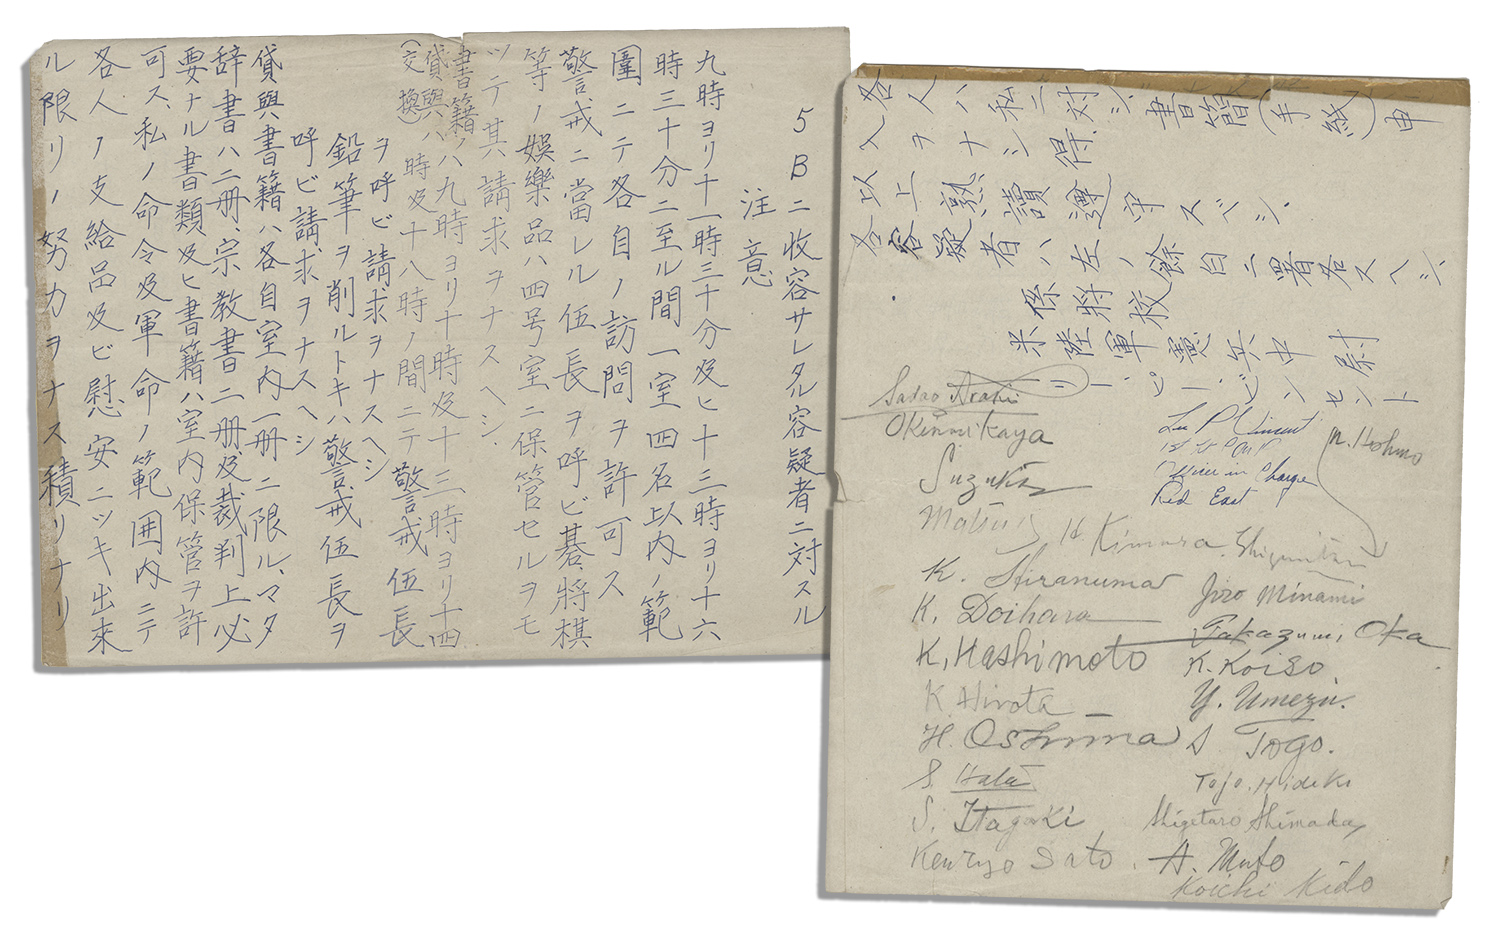 5Bニ收容サレタル容疑者ニ対スル
注意
九時ヨリ十一時三十分及ヒ十三時ヨリ十六
時三十分ニ至ル間一室四名以内ノ範
圍ニテ各自ノ訪問ヲ許可ス
警戒ニ當レル伍長ヲ呼ビ碁、將棋
等ノ娯樂品ハ四号室ニ保管セルヲモ
ツテ其請求ヲナスヘシ.
書籍ノハ九時ヨリ十時及十三時ヨリ十四
貸與ハ 時及十八時ノ間ニテ警戒伍長
(交換)
ヲ呼ビ請求ヲナスヘシ
鉛筆ヲ削ルトキハ警戒伍長ヲ
呼ビ請求ヲナスヘシ
貸與書籍ハ各自室内一册ニ限ル、マタ
辞書ハ二册、宗教書二册、及裁判上必
要ナル書類及ヒ書籍ハ室内保管ヲ許
可ス、私ノ命令及軍命ノ範囲内ニテ
各人ノ支給品及ビ慰安ニツキ出來
ル限リノ努力ヲナス積リナリ
各人ハ私ニ対シ書簡(手紙)申
入ヲナシ得.
以上熟讀遵守スベシ.
各容疑者ハ左ノ餘白ニ署名スヘシ
係將校
米陸軍憲兵中尉
リー、ピー、ビンセント
Sadao Araki
Okinori Kaya
Suzuki
Matsui
H Kimura
K. Hiranuma
K. Doihara
K. Hashimoto
K Hirota
H. Oshima
S Hata
S. Itagaki
Kenryo Sato
Lee P Vincent
1st Lt CMP
Officer in Charge
Red East
N. Hoshino
Shigemitsu
Jiro Minami
Takazumi Oka
K. Koiso
Y. Umezu.
S Togo.
Tojo. Hideki
Shigetaro Shimada
A. Muto
Koichi Kido